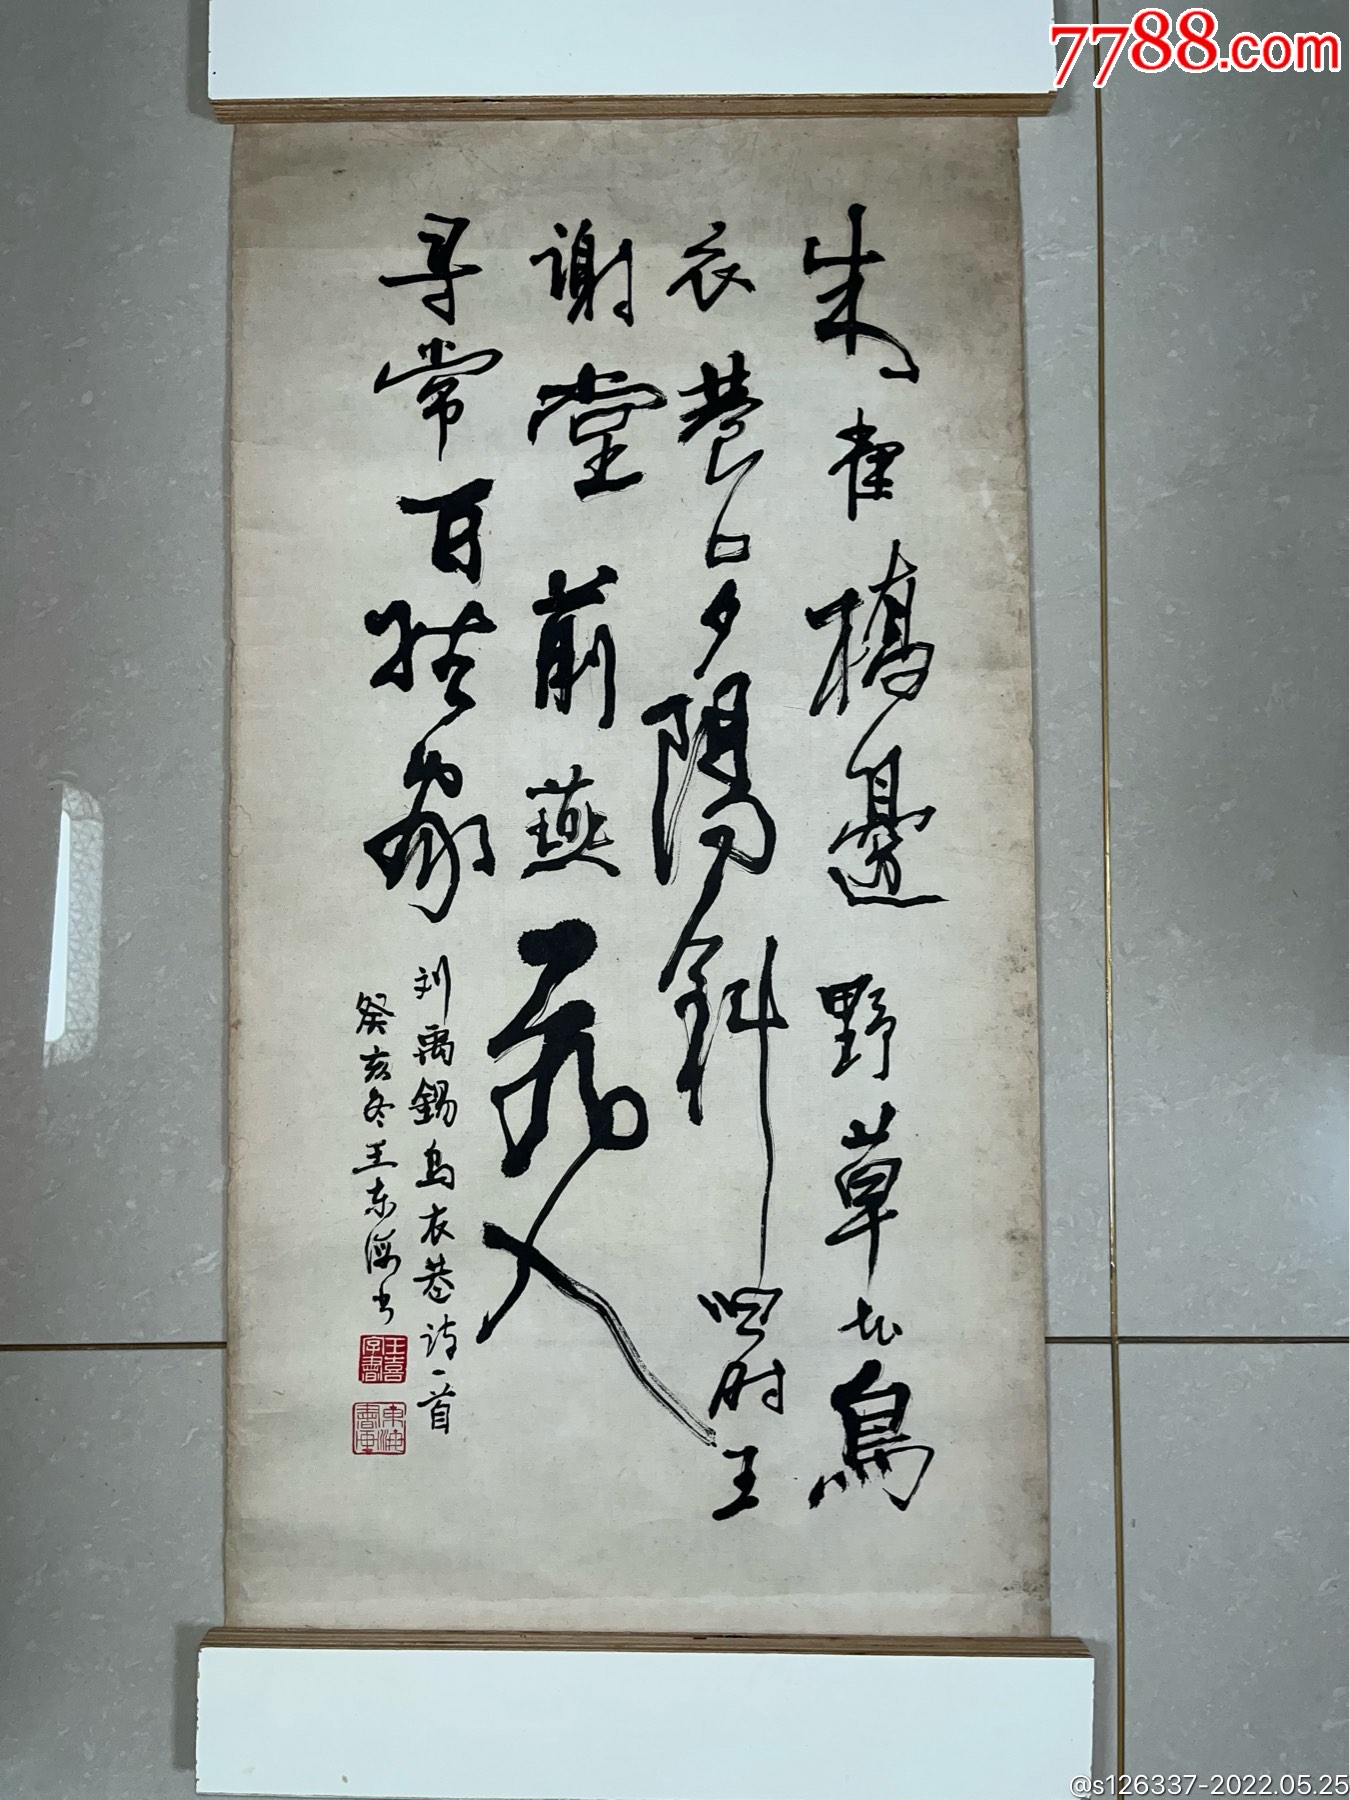 朱雀橋邊野草花烏
衣巷口夕陽斜旧时王
謝堂前燕飛入
寻常百姓家
刘禹錫烏衣巷诗一首
癸亥冬王东海书
東海書画
7788.com
@s126337-2022.05.25